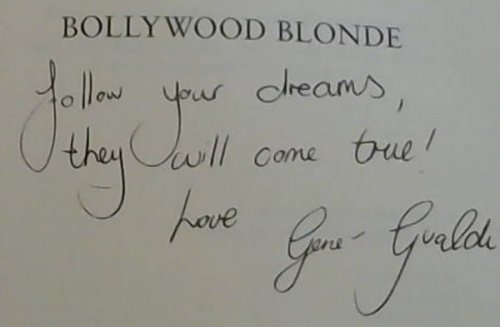 BOLLYWOOD BLONDE
follow your dreams,
they will come true!
Love